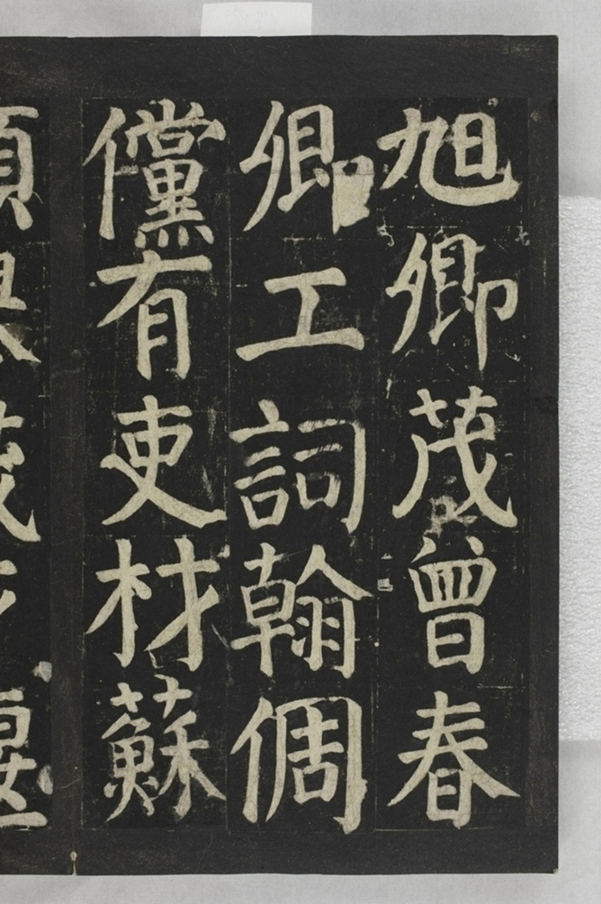 旭卿茂曾春
卿工詞翰倜
儻有吏材蘇